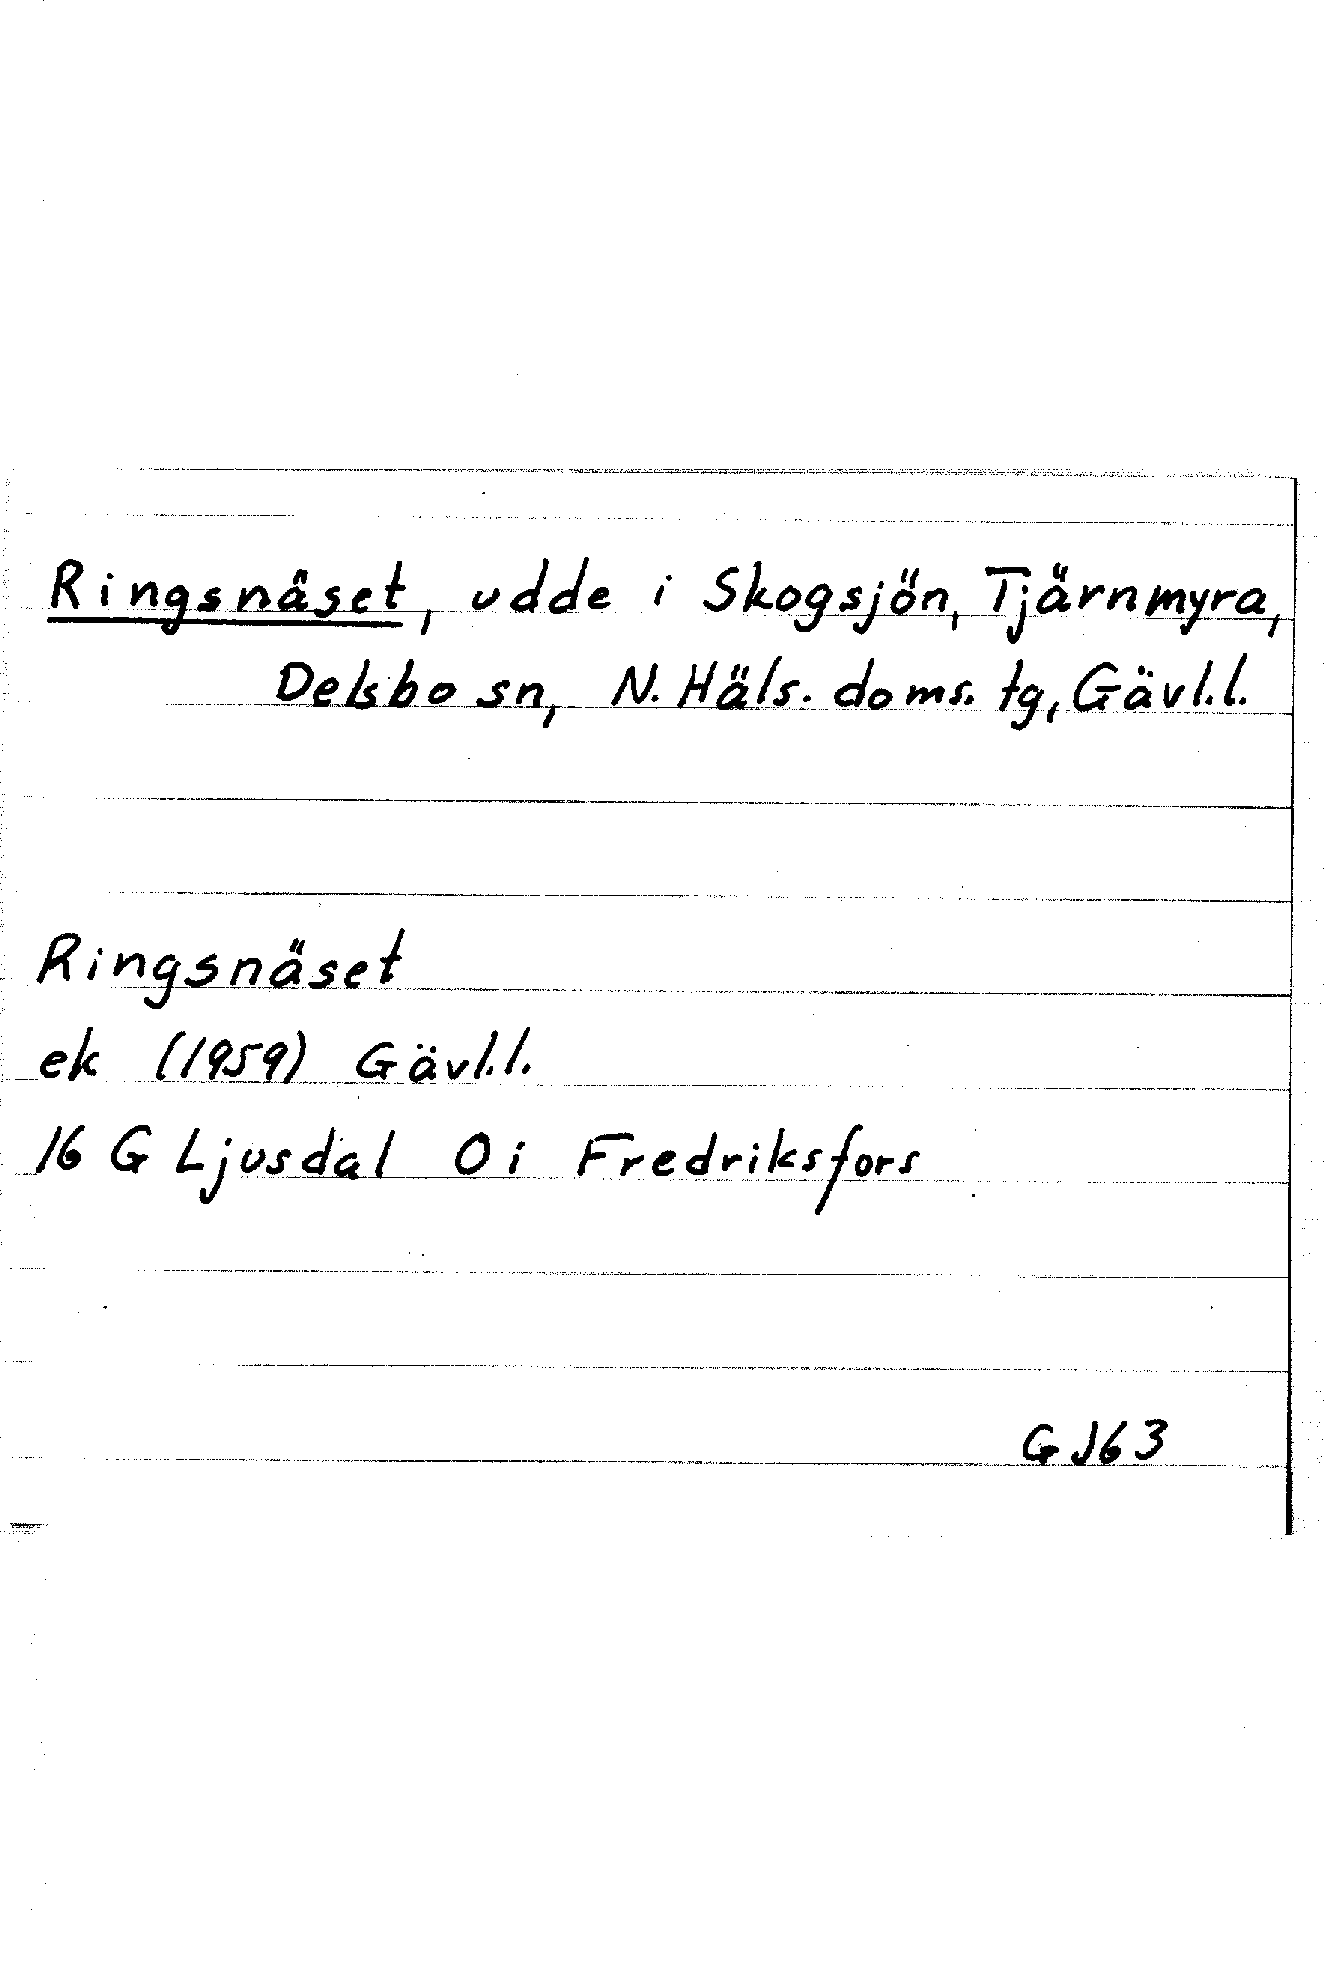 Ringsnäset, udde i Skogsjön, Tjärnmyra,
Delsbo sn, N. Häls. doms. tg, Gävl.l.
Ringsnäset
ek (1959) Gävl.l.
16 G Ljusdal 0i Fredriksfors
GJ63